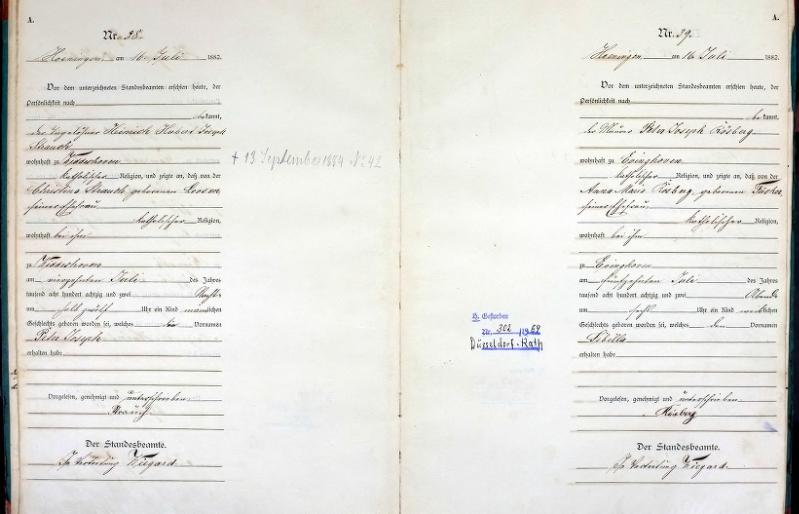 A.
Nr. 38.
Hoeningen am 16. Juli 1882.
Vor dem unterzeichneten Standesbeamten erschien heute, der
Persönlichkeit nach
bekannt,
der Tagelöhner Heinrich Hubert Joseph
Strauch
wohnhaft zu Widdeshoven
katholischer Religion, und zeigte an, daß von der
Christina Strauch geborenen
seiner Ehefrau
katholischer Religion,
wohnhaft bei ihm
zu Widdeshoven
am vierzehnten Juli des Jahres
tausend acht hundert achtzig und zwei Nachts
um halb zwölf Uhr ein Kind männlichen
Geschlechts geboren worden sei, welches die Vornamen
Peter Joseph
erhalten habe
Vorgelesen, genehmigt und unterschrieben.
Strauch
Der Standesbeamte.
In Vertretung Wiegard
+ 13 September 1884 No 42
H. Gestorben
Nr. 302 /1969
Düsseldorf-Rath
A.
Nr. 39.
Hoeningen am 16 Juli 1882.
Vor dem unterzeichneten Standesbeamten erschien heute, der
Persönlichkeit nach
bekannt,
der Maurer Peter Joseph Kösberg
wohnhaft zu Evinghoven
katholischer Religion, und zeigte an, daß von der
Anna Maria Kösberg geborenen
seiner Ehefrau
katholischer Religion,
wohnhaft bei ihm
zu Evinghoven
am fünfzehnten Juli des Jahres
tausend acht hundert achtzig und zwei Abends
um Uhr ein Kind weiblichen
Geschlechts geboren worden sei, welches den Vornamen
Sibilla
erhalten habe
Vorgelesen, genehmigt und unterschrieben
Kösberg
Der Standesbeamte.
In Vertretung Wiegard